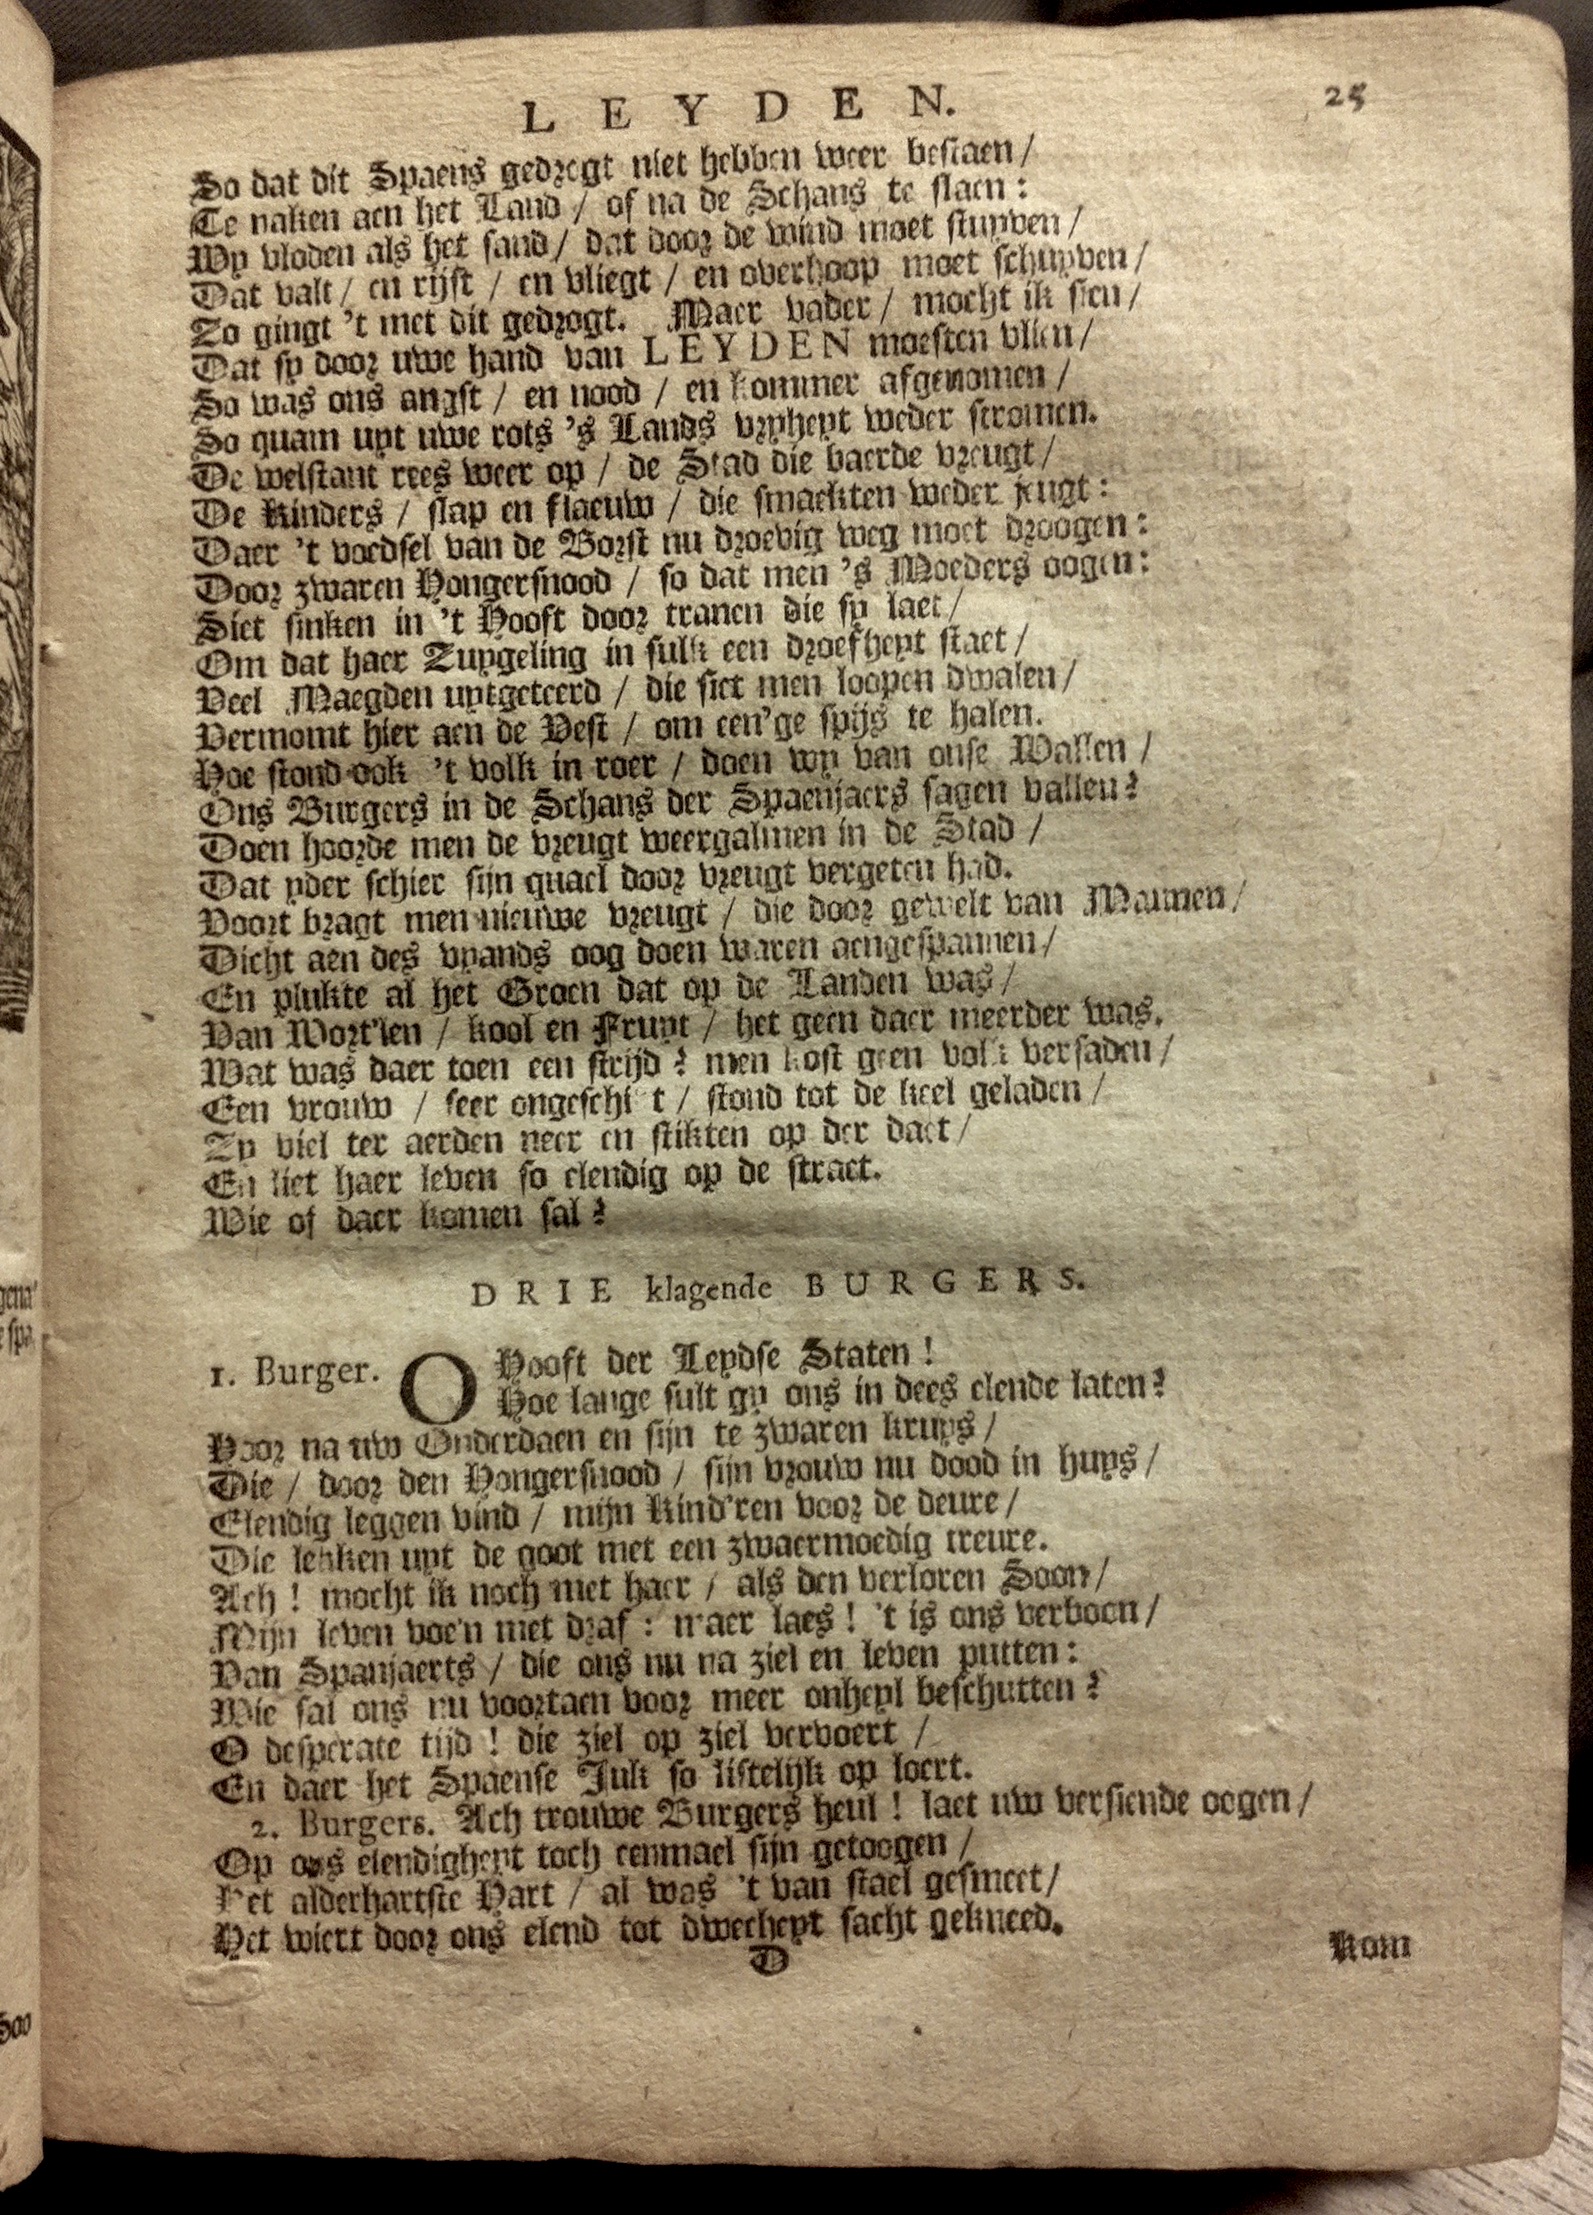 LEYDEN. 25
So dat dit Spaens gedregt niet hebben weer bestaen /
Te naken aen het Land / of na de Schans te slaen :
Wy vloden als het sand / dat door de wind moet stuyven /
Dat valt / en rijst / en vliegt / en overhoop moet schuyven /
Zo gingt 't met dit gedrogt. Maer vader / mocht ik sien /
Dat sy door uwe hand van LEYDEN moesten vlien /
So was ons angst / en nood / en kommer afgenomen /
So quam uyt uwe rots 's Lands vryheyt weder stromen.
De welstant rees weer op / de Stad die baerde vreugt /
De Kinders / slap en flaeuw / die smaekten weder jeugt :
Daer 't voedsel van de Borst nu droevig weg moet droogen :
Door zwaren Hongersnood / so dat men 's Moeders oogen :
Siet sinken in 't Hooft door tranen die sy laet /
Om dat haer Zuygeling in sulk een droefheyt staet /
Veel Maegden uytgeteerd / die siet men loopen dwalen /
Vermomt hier aen de Vest / om een'ge spijs te halen.
Hoe stond ook 't volk in roer / doen wy van onse Wallen /
Ons Burgers in de Schans der Spaenjaers sagen vallen?
Doen hoorde men de vreugt weergalmen in de Stad /
Dat yder schier sijn quael door vreugt vergeten had.
Voort bragt men nieuwe vreugt / die door gewelt van Mannen /
Dicht aen des vyands oog doen waren aengespannen /
En plukte al het Groen dat op de Landen was /
Van Wort'len / kool en Fruyt / het geen daer meerder was.
Wat was daer toen een strijd? men kost geen volk versaden /
Een vrouw / seer ongeschikt / stond tot de keel geladen /
Zy viel ter aerden neer en stikten op der daet /
En liet haer leven so elendig op de straet.
Wie of daer komen sal?
DRIE klagende BURGERS.
1. Burger. O Hooft der Leydse Staten !
Hoe lange sult gy ons in dees elende laten?
Hoor na uw Onderdaen en sijn te zwaren kruys /
Die / door den Hongersnood / sijn vrouw nu dood in huys /
Elendig leggen vind / mijn Kind'ren voor de deure /
Die lekken uyt de goot met een zwaermoedig treure.
Ach ! mocht ik noch met haer / als den verloren Soon /
Mijn leven voe'n met draf : maer laes ! 't is ons verboon /
Van Spanjaerts / die ons nu na ziel en leven putten :
Wie sal ons nu voortaen voor meer onheyl beschutten?
O desperate tijd ! die ziel op ziel vervoert /
En daer het Spaense Juk so listelijk op loert.
2. Burgers. Ach trouwe Burgers heul ! laet uw versiende oogen /
Op ons elendigheyt toch eenmael sijn getoogen /
Het alderhartste Hart / al was 't van stael gesmeet /
Het wiert door ons elend tot dweeheyt sacht gekneed.
D Kom